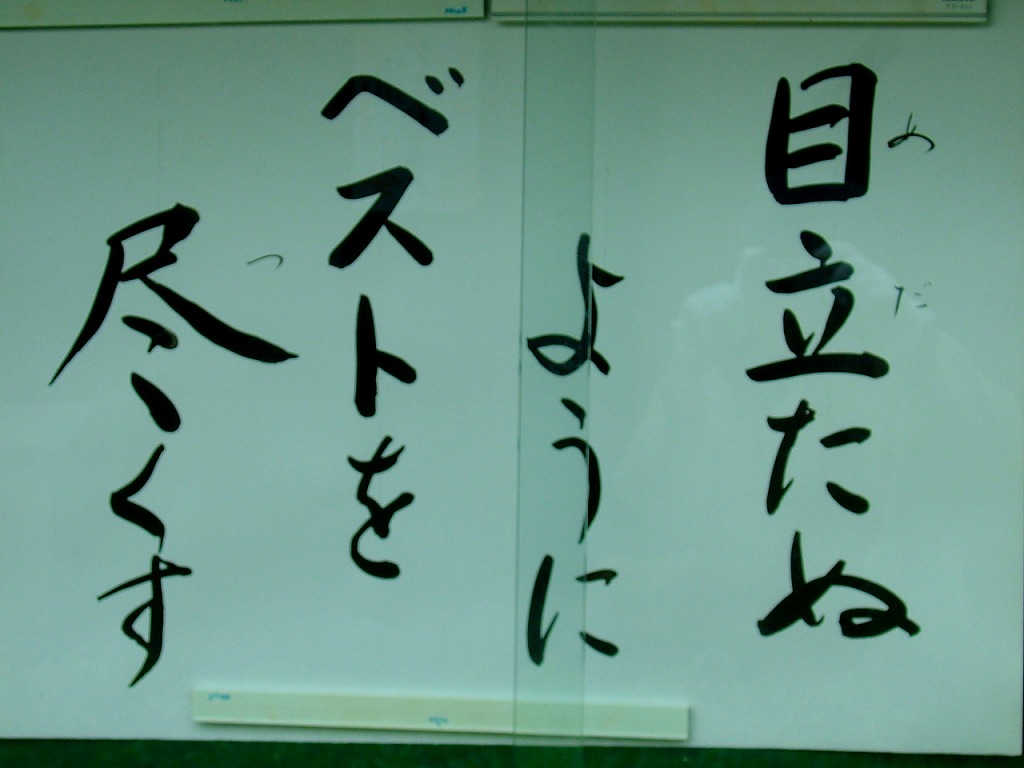 目立たぬ
ように
ベストを
尽くす
め
だ
つ